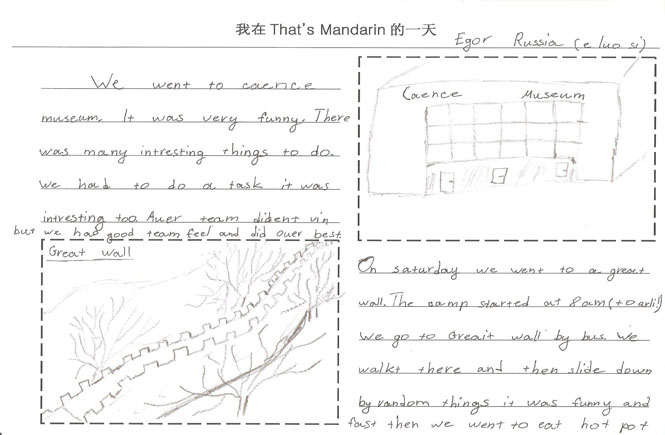 我在 That's Mandarin 的一天
Egor Russia (e luo si)
We went to caence
museum. It was very funny. There
was many intresting things to do.
we had to do a task it was
intresting too. Auer team dident vin
but we had good team feel and did ouer best
Caence Museum
Great wall
On saturday we went to a great
wall. The camp started at 8am (to arli!)
We go to Greait wall by bus. We
walkt there and then slide down
by random things it was funny and
fast then we went to eat hot pot